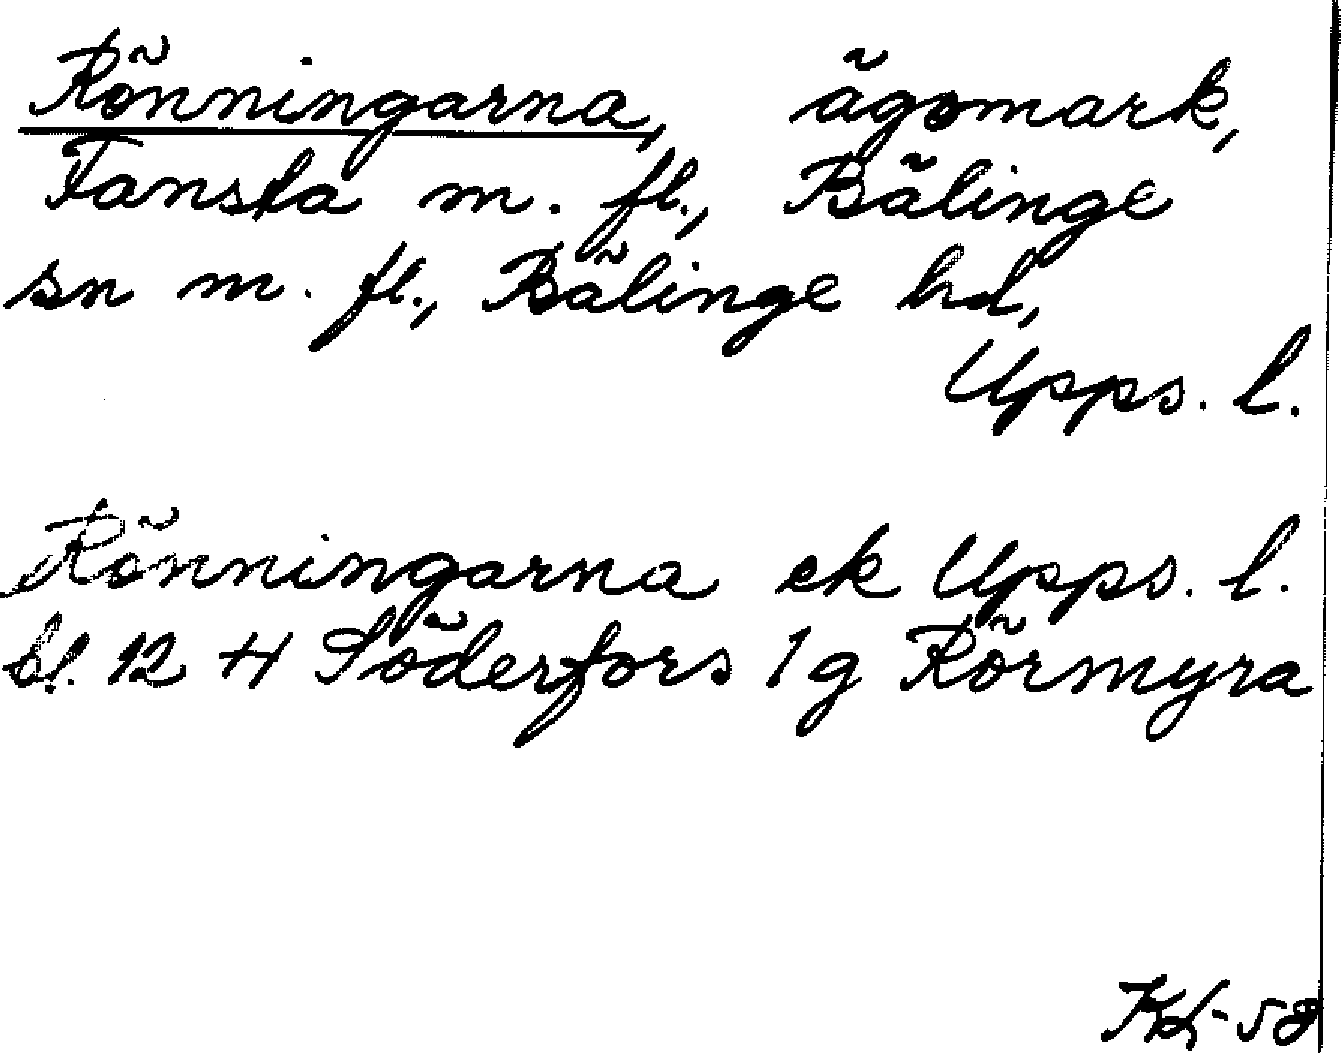 Rönningarna, ägomark,
Fansta m. fl., Bälinge
sn m. fl., Bälinge hd,
Upps. l.
Rönningarna ek Upps. l.
bl. 12 H Söderfors 1 g Rörmyra